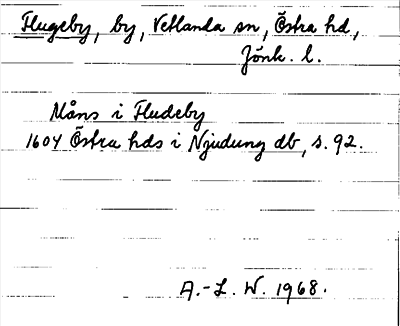 Flugeby, by, Vetlanda sn, Östra hd,
Jönk. l.
Måns i Fludeby
1604 Östra hds i Njudung db, s. 92.
A.-L. W. 1968.